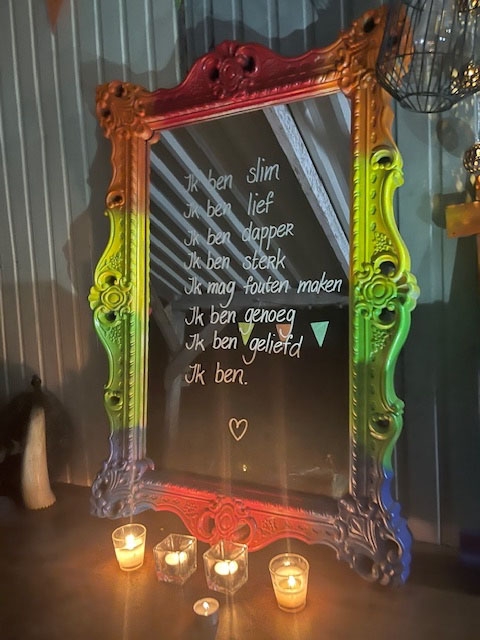 Ik ben slim
Ik ben lief
Ik ben dapper
Ik ben sterk
Ik mag fouten maken
Ik ben genoeg
Ik ben geliefd
Ik ben.